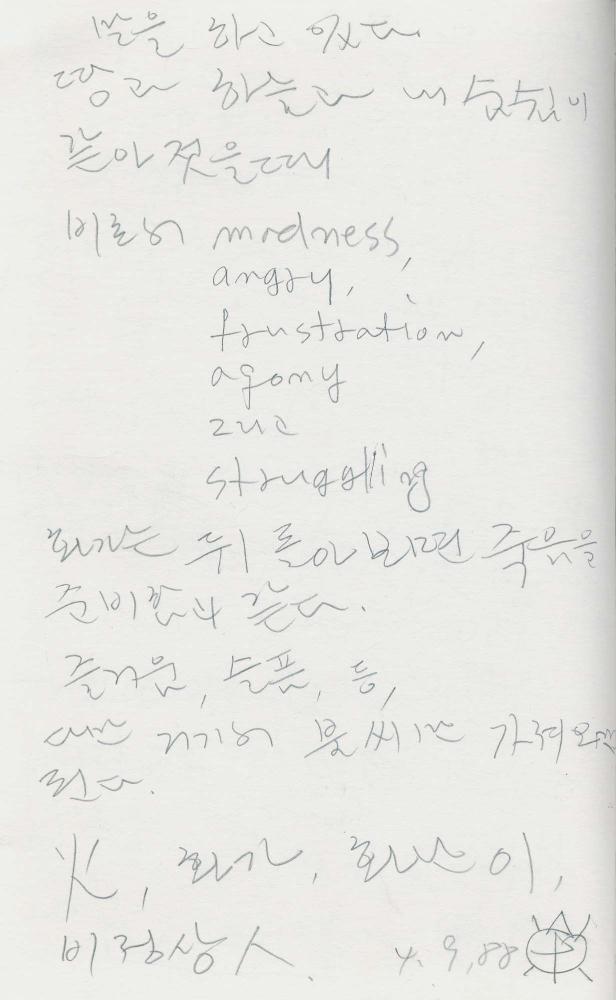 말을 하고 있다
땅과 하늘과 내 숨쉼이
같아 젔을때
비로서 madness,
angry,
frustration,
agony
그리고
struggling
화가는 뒤 돌아 보면 죽음을
준비함과 같다.
즐거움, 슬픔, 등,
거기서 불씨만 가져오면
된다.
火, 화가, 화난이,
비정상人.
4. 9, 88